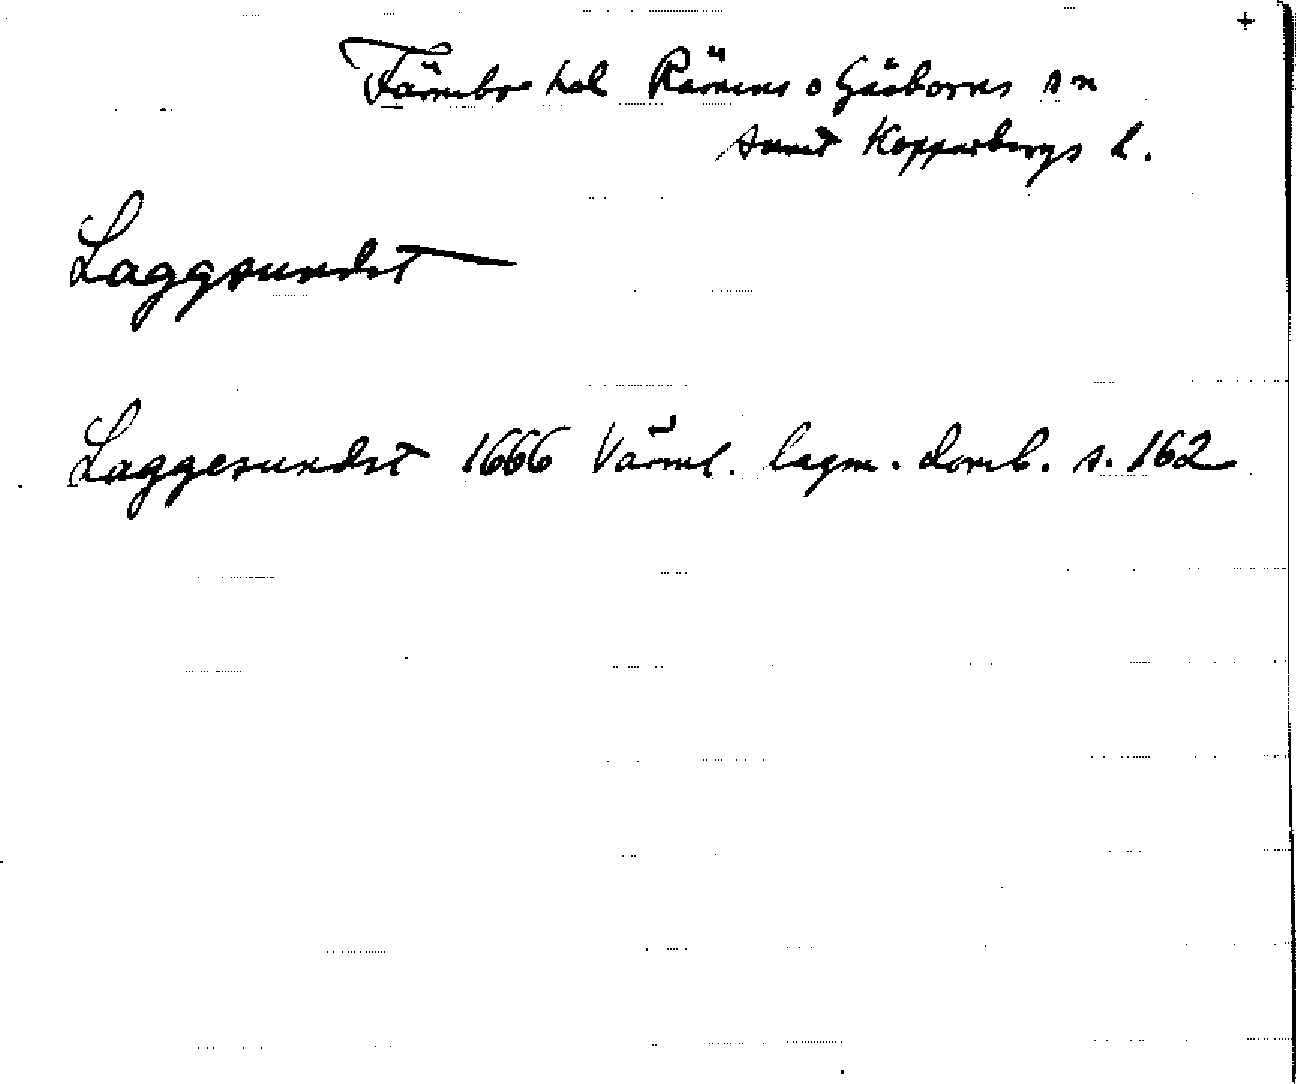 Färnebo hd Rämens o Gåsborns sn
samt Kopparbergs l.
Laggsundet
Laggesundet 1666 Värml. lagm. domb. s. 162